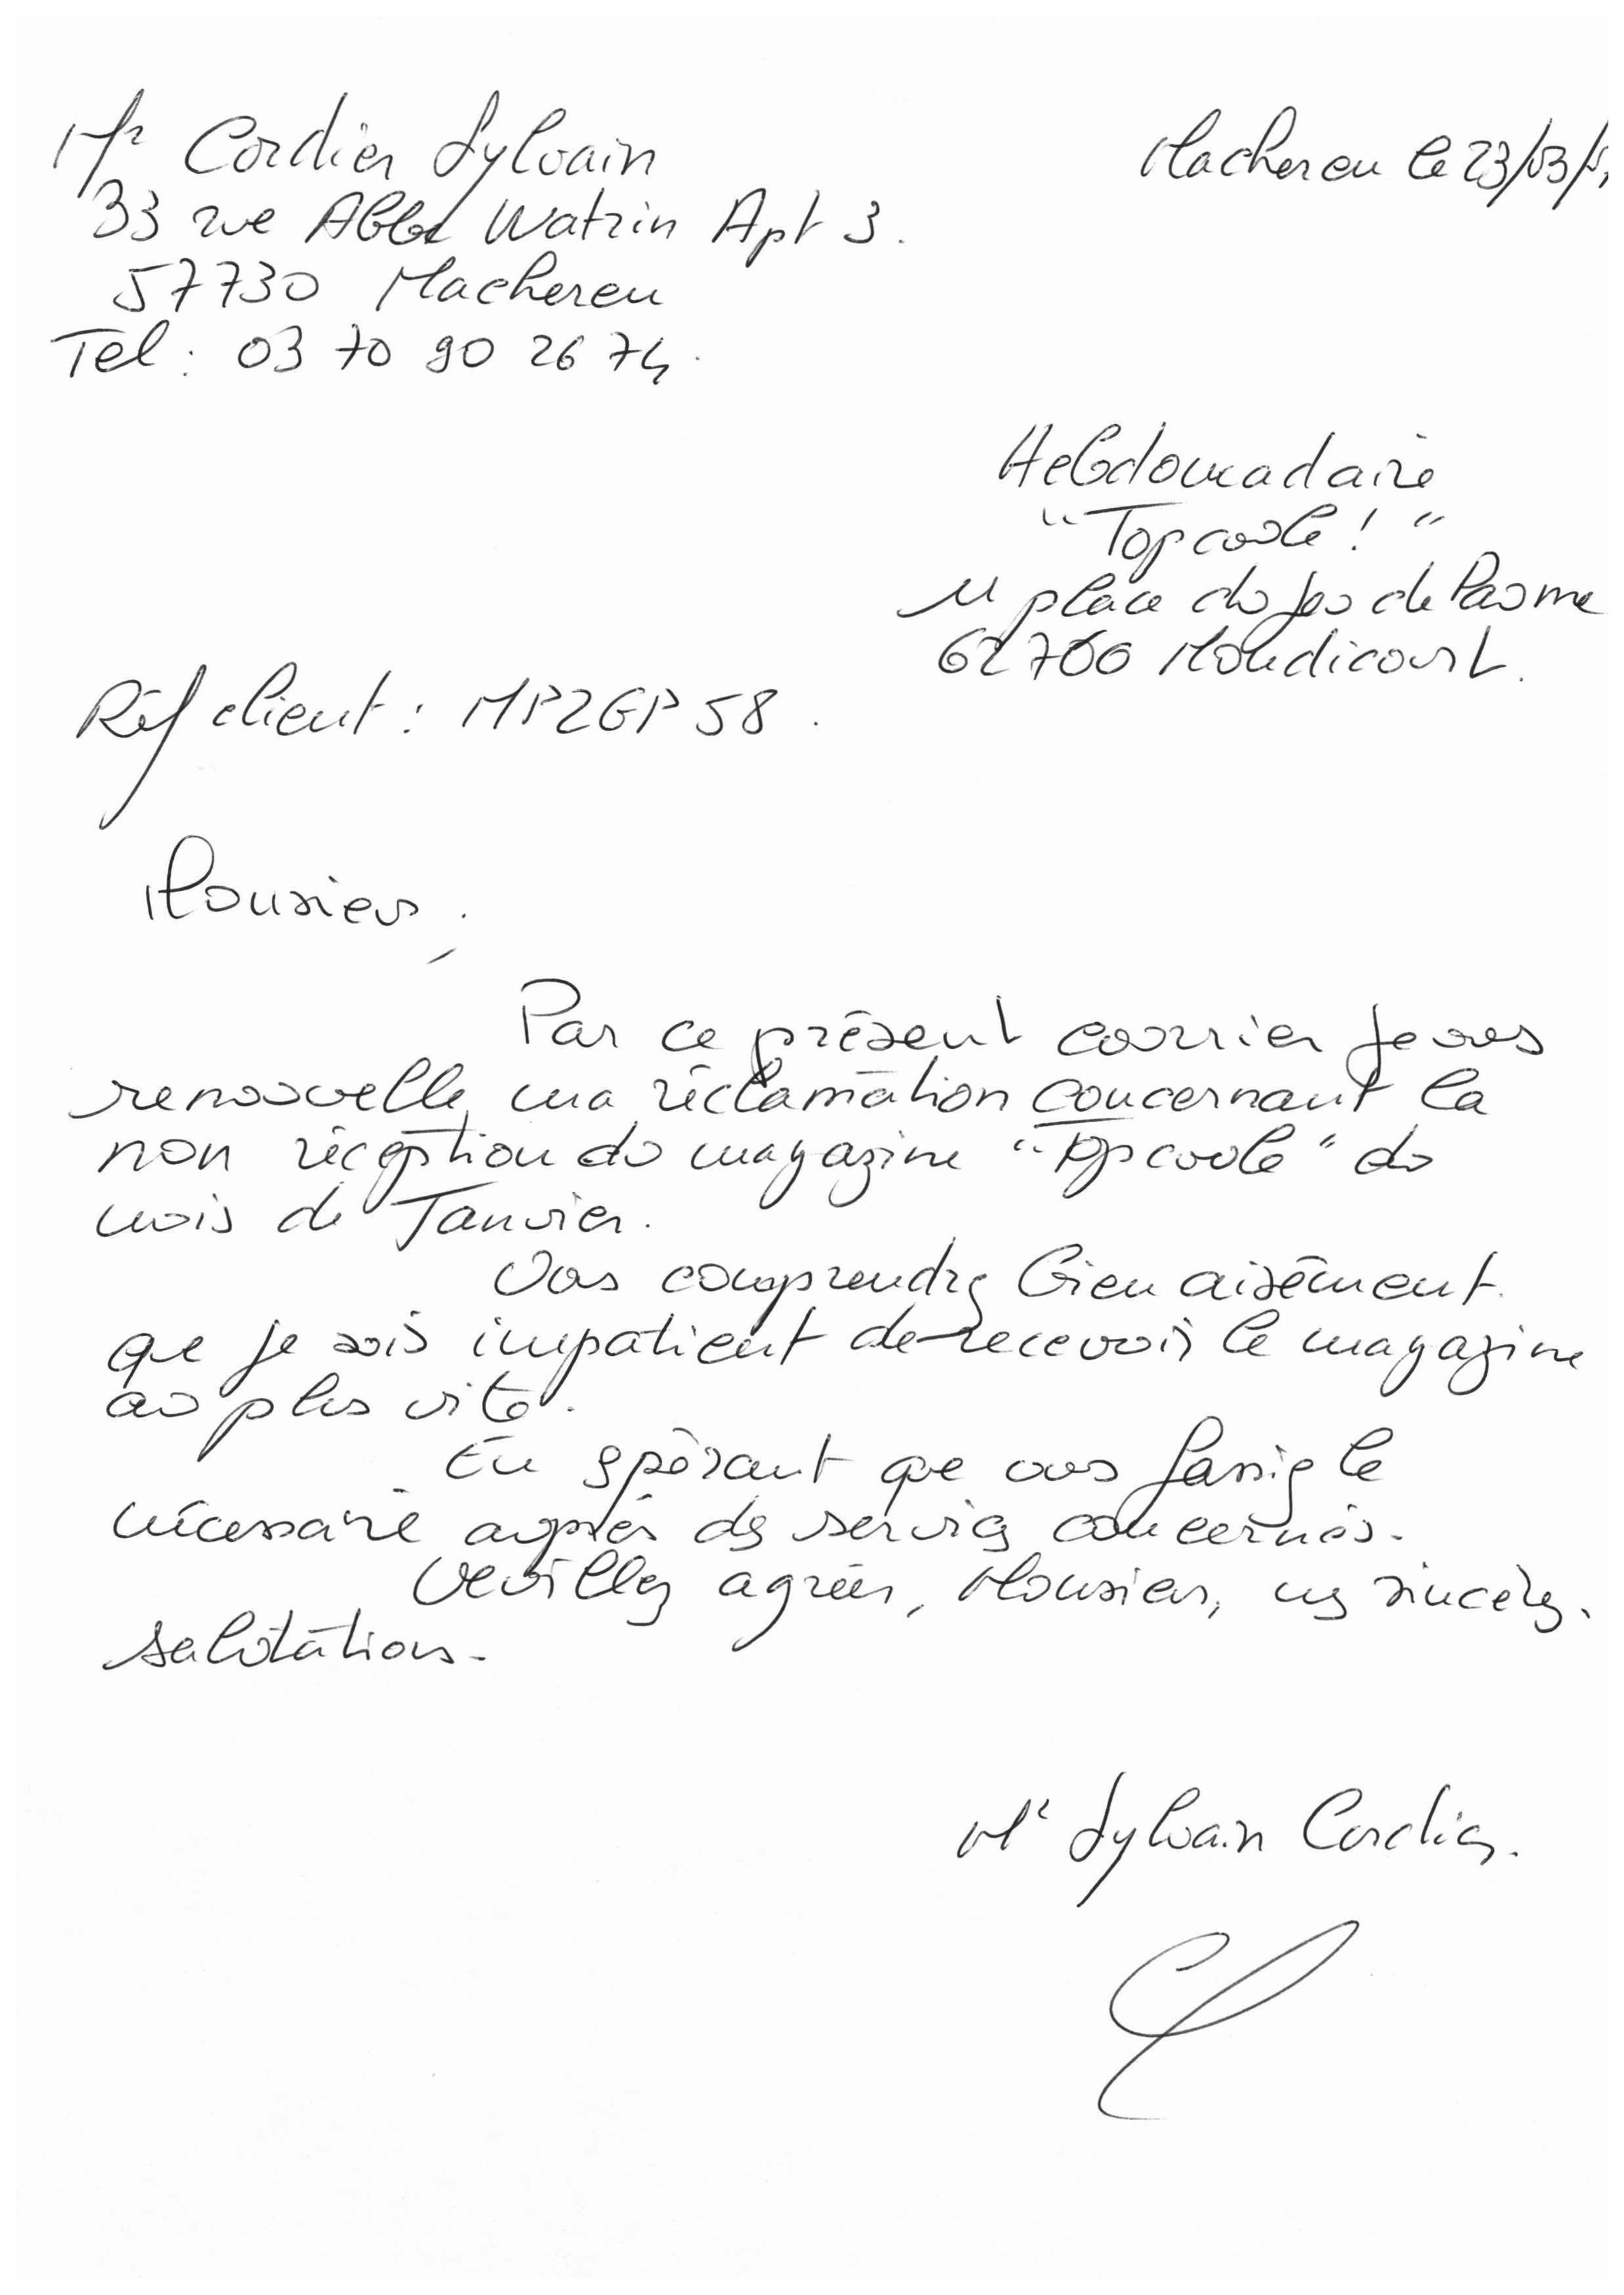 Mr Cordier Sylvain
Machereu le 23/03/
33 rue Abbé Watrin Apt 3.
57730 Machereu
Tel : 03 70 90 26 74.
Hebdomadaire
"Top coole ! "
11 place du Jeu de Paume
62760 Mondicourt.
Réf client : MPZGP58.
Monsieur,
Par ce présent courrier je vous
renouvelle ma réclamation concernant la
non réception du magazine "Top coole" du
mois de Janvier.
Vous comprendrez bien aisément
que je sois impatient de recevoir le magazine
au plus vite.
En espérant que vous fassiez le
nécessaire auprès des services concernés.
Veuillez agréer, Monsieur, mes sincères
salutations.
Mr Sylvain Cordier.